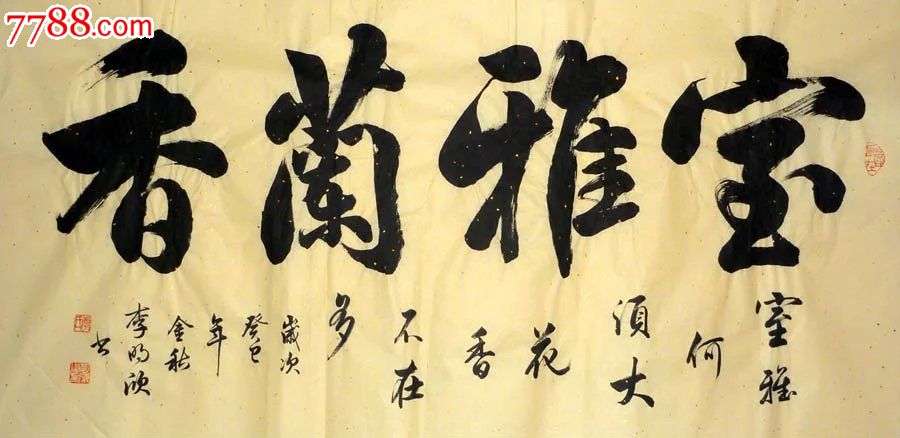 7788.com
室雅蘭香
室雅
何
須大
花
香
不在
多
歲次
癸巳
年
金秋
李明欣
书